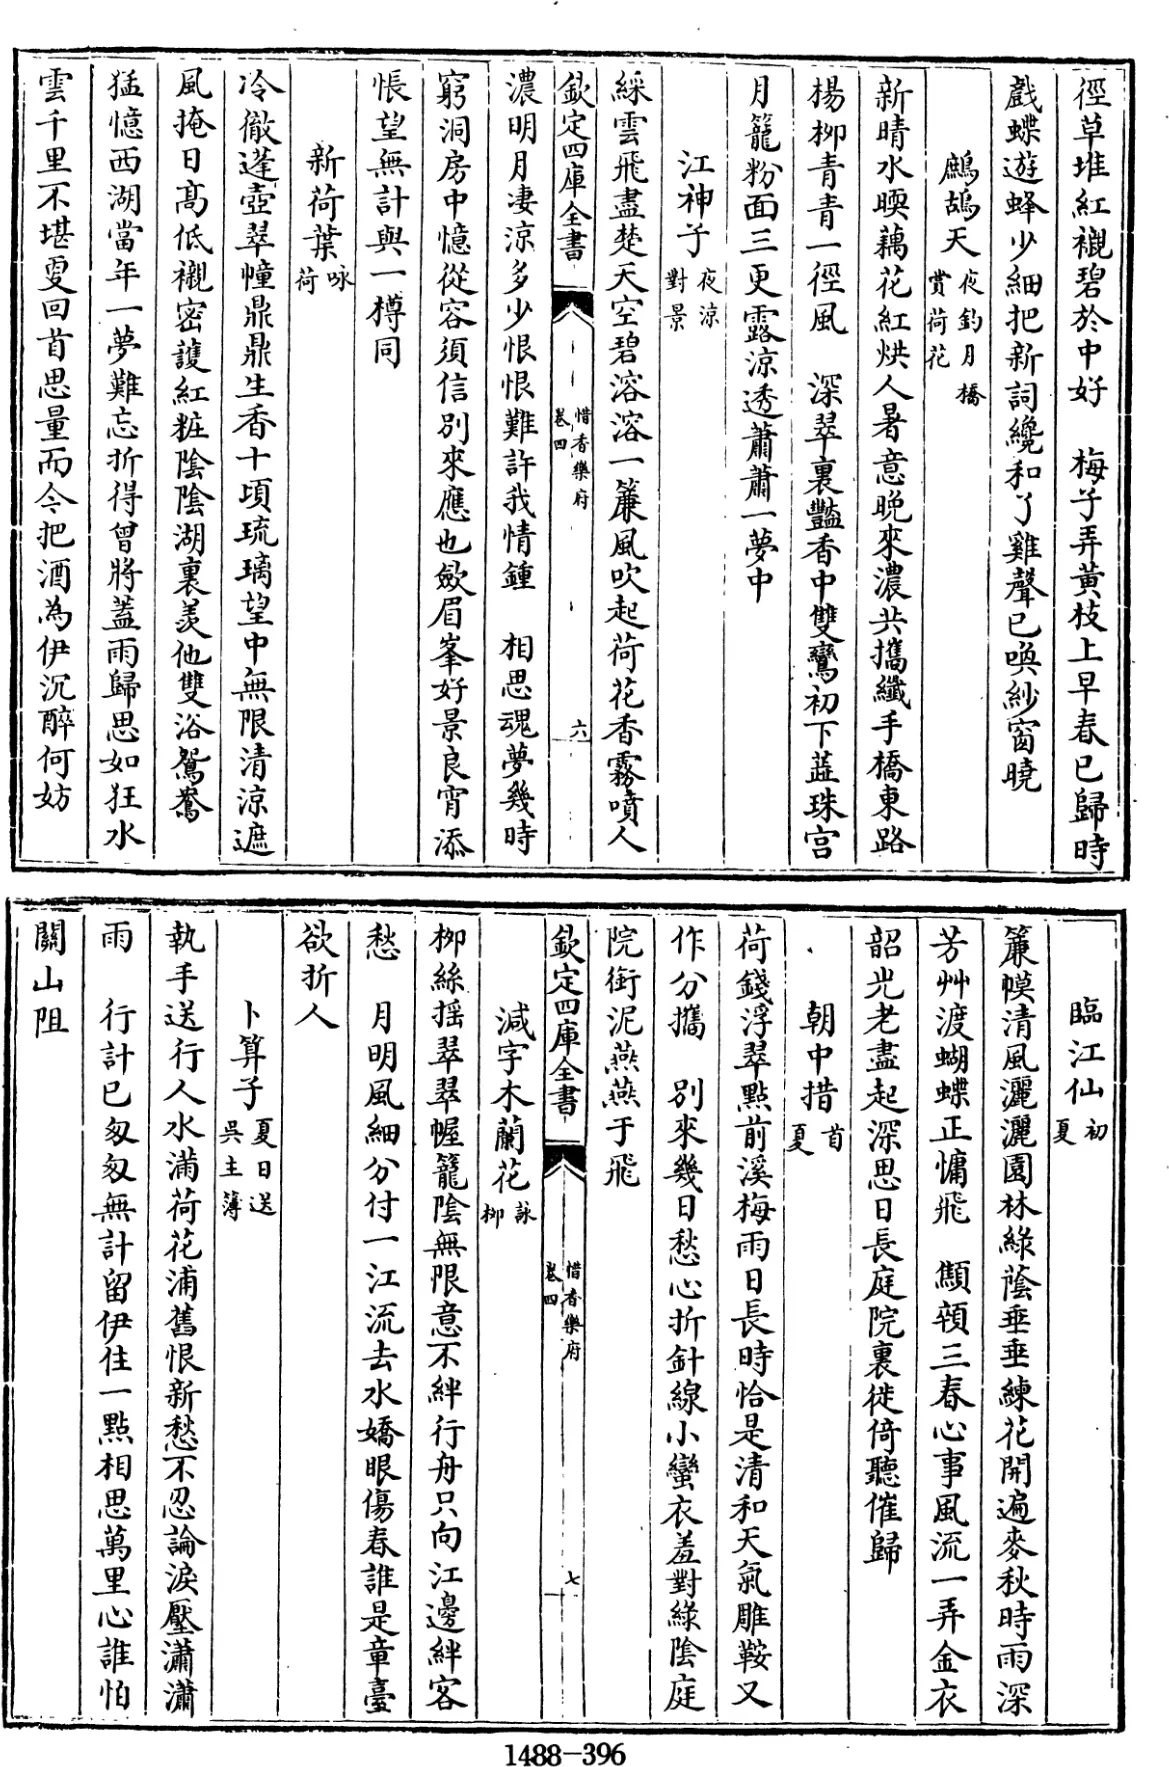 徑草堆紅襯碧於中好　梅子弄黃枝上早春已歸時
戲蝶遊蜂少細把新詞纔和了雞聲已喚紗窗曉
鷓鴣天夜釣月橋賞荷花
新晴水暝藕花紅烘人暑意晚來濃共攜纖手橋東路
楊柳青青一徑風　深翠裏豔香中雙鸞初下蕋珠宮
月籠粉面三更露涼透蕭蕭一夢中
江神子夜涼對景
綵雲飛盡楚天空碧溶溶一簾風吹起荷花香霧噴人
欽定四庫全書　惜香樂府卷四　六
濃明月凄涼多少恨恨難許我情鍾　相思魂夢幾時
窮洞房中憶從容須信別來應也斂眉峯好景良宵添
悵望無計與一樽同
新荷葉咏荷
冷徹蓬壺翠幢鼎鼎生香十頃琉璃望中無限清涼遮
風掩日高低襯密護紅粧陰陰湖裏羨他雙浴鴛鴦
猛憶西湖當年一夢難忘折得曾將蓋雨歸思如狂水
雲千里不堪更回首思量而今把酒為伊沉醉何妨
臨江仙初夏
簾幙清風灑灑園林綠蔭垂垂練花開遍麥秋時雨深
芳艸渡蝴蝶正慵飛　顦顇三春心事風流一弄金衣
韶光老盡起深思日長庭院裏徙倚聽催歸
朝中措首夏
荷錢浮翠點前溪梅雨日長時恰是清和天氣雕鞍又
作分攜　別來幾日愁心折針線小蠻衣羞對綠陰庭
院銜泥燕燕于飛
欽定四庫全書　惜香樂府卷四　七
減字木蘭花詠柳
柳絲搖翠翠幄籠陰無限意不絆行舟只向江邊絆客
愁　月明風細分付一江流去水嬌眼傷春誰是章臺
欲折人
卜算子夏日送吳主簿
執手送行人水滿荷花浦舊恨新愁不忍論淚壓瀟瀟
雨　行計已匆匆無計留伊住一點相思萬里心誰怕
關山阻
1488-396